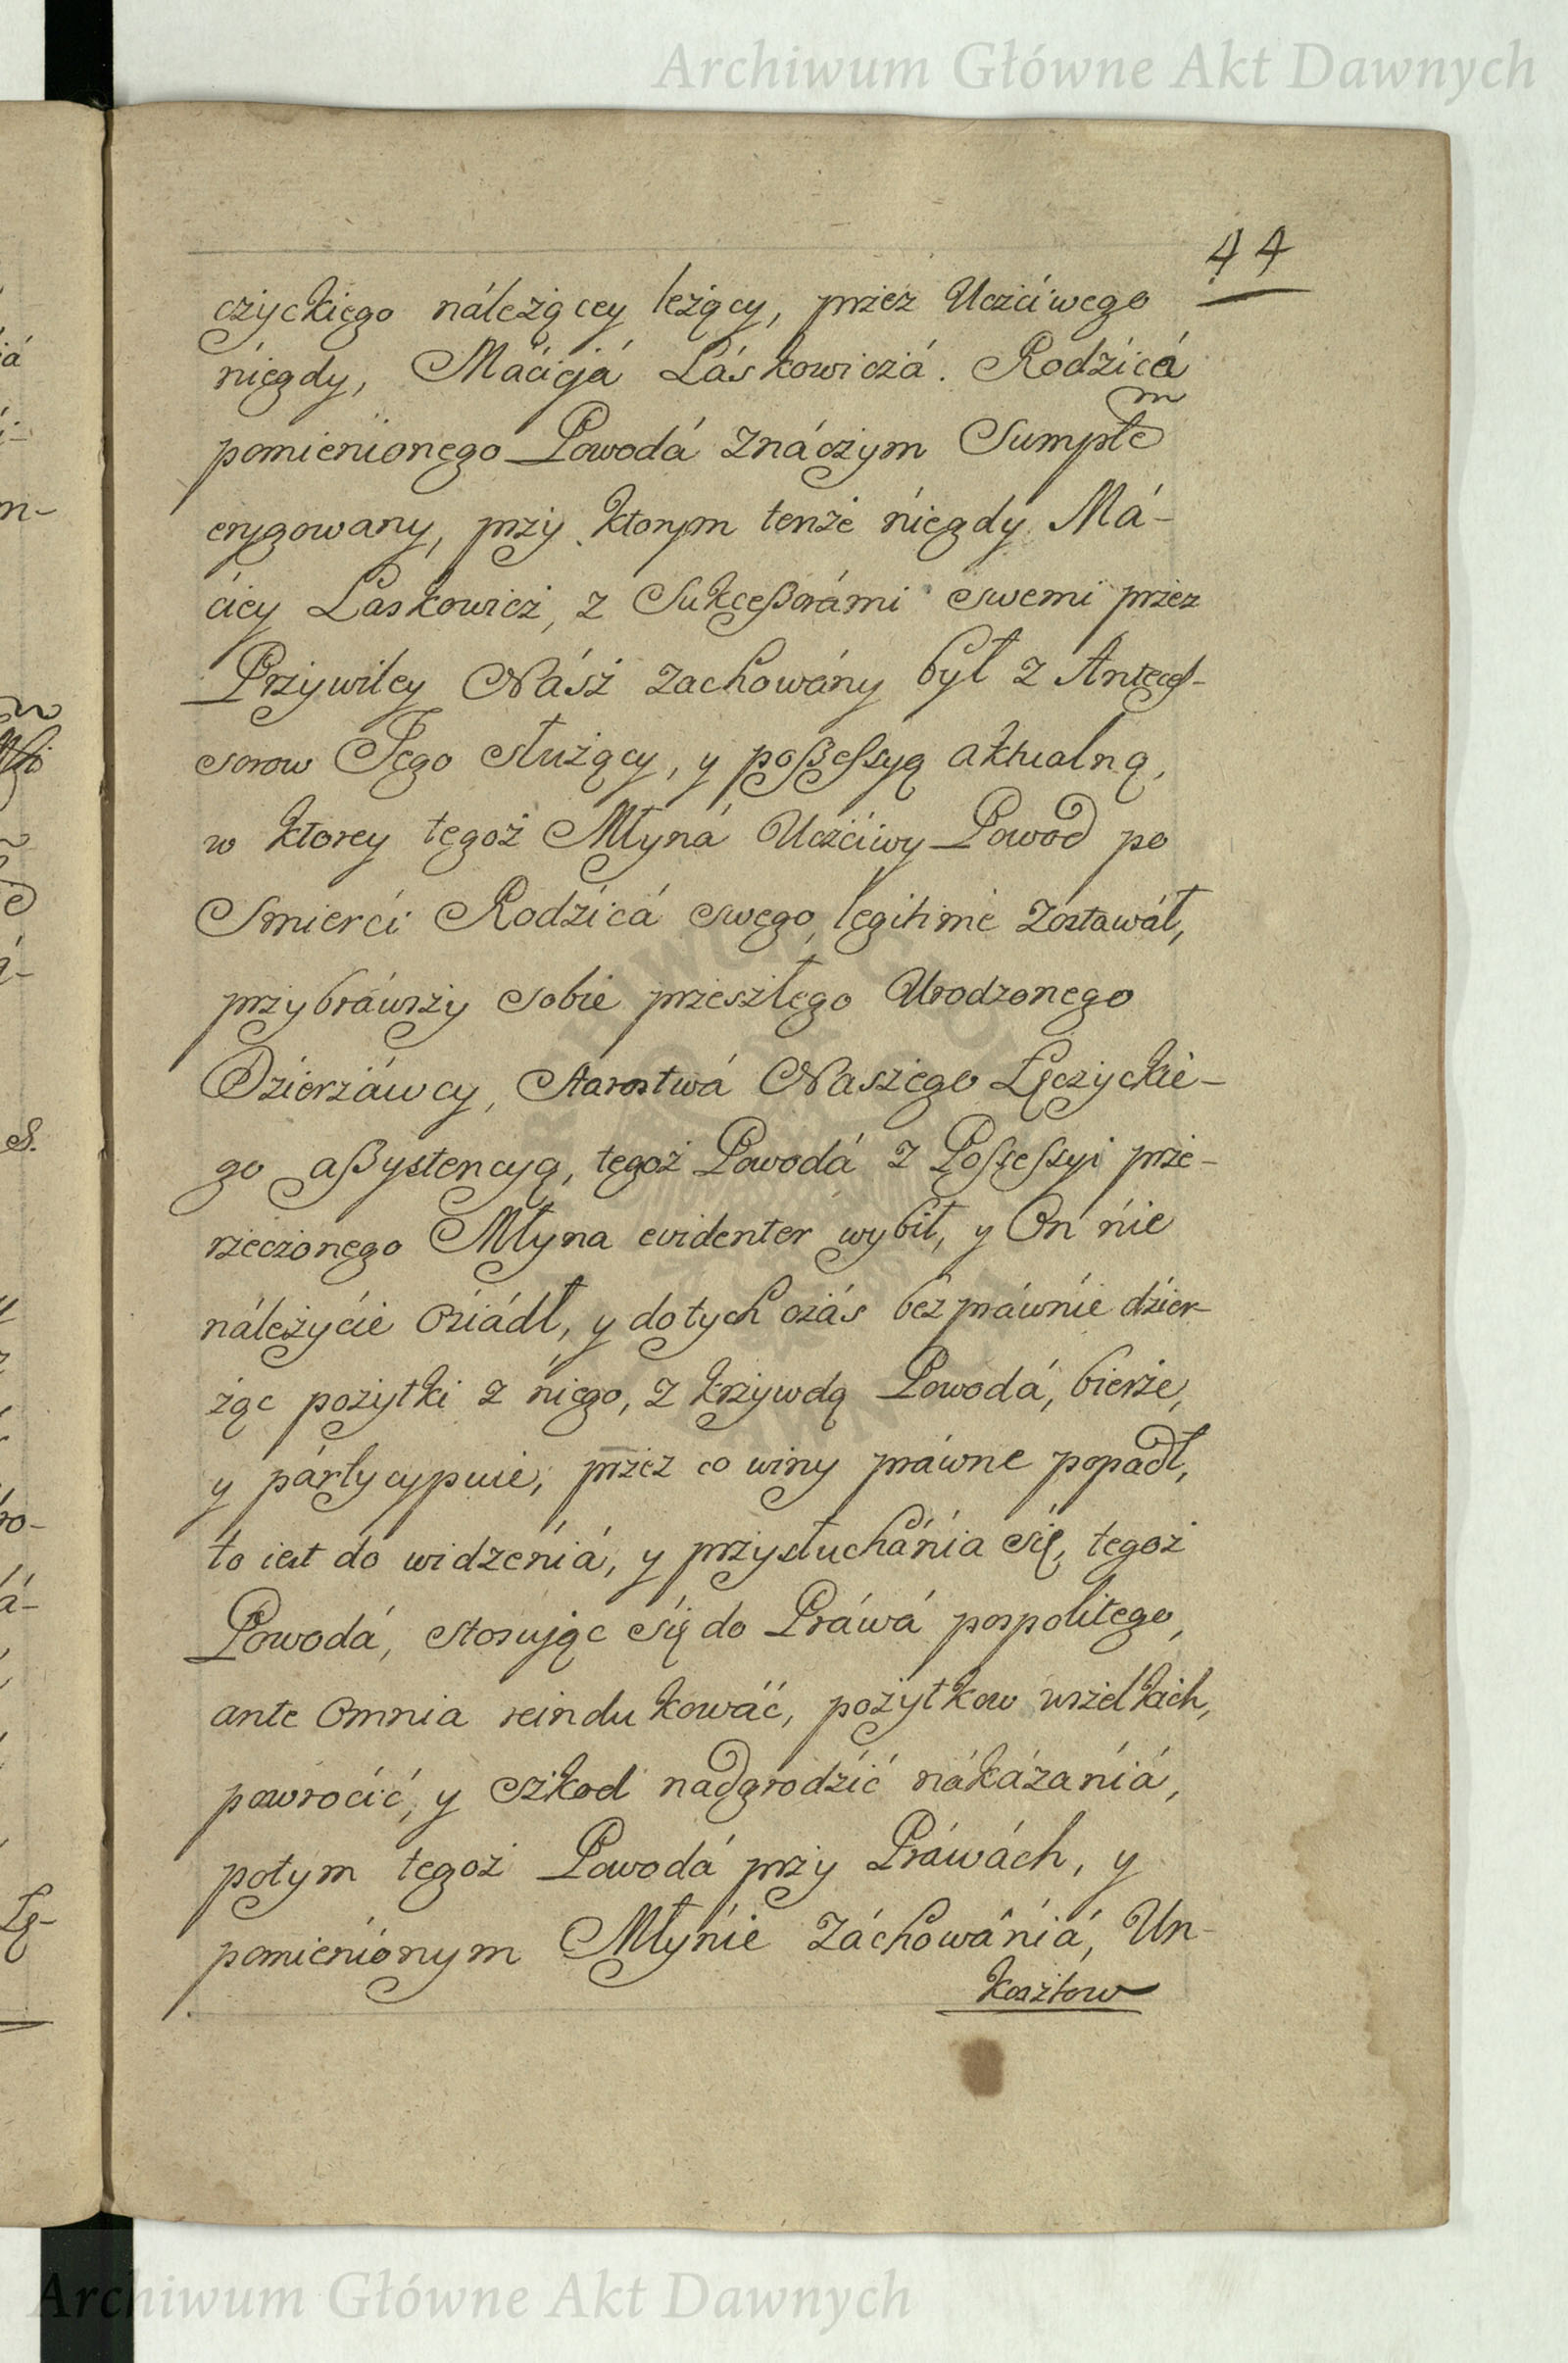 Archiwum Główne Akt Dawnych
44
czyckiego náleżącey leżący, przez Uczćiwego
niegdy, Máćiejá Láskowiczá. Rodźicá
pomienionego Powodá znáczym Sumptē
erygowany, przy ktorym tenże niegdy Má-
ćiey Laskowicz, z Sukceßorámi swemi przez
Przywiley Nász zachowány był z Anteces-
sorow Jego służący, y poßessyą aktualną,
w ktorey tegoż Młyná Uczćiwy Powod po
Smierći Rodźicá swego, legitime zostawáł,
przybráwszy sobie przeszłego Urodzonego
Dzierżáwcy, Starostwá Naszego Łęczyckie-
go aßystencyą, tegoż Powodá z Possessyi prze-
rzeczonego Młyna evidenter wybił, y On nie
náleżyćie ośiádł, y dotych czás bezpráwnie dźier-
żąc pożytki z niego, z krzywdą Powodá, bierze,
y pártycypuie, przez co winy práwne popadł,
to iest do widzeniá, y przysłucháńia się, tegoż
Powodá, stosując się do Práwá pospolitego,
ante omnia reindukowáć, pożytkow wszelkich,
powroćić, y szkod nadgrodźić nákázániá,
potym tegoż Powodá przy Práwách, y
pomienionym Młynie záchowániá, Un-
kosztow
ARCHIWUM GŁÓWNE AKT DAWNYCH
Archiwum Główne Akt Dawnych